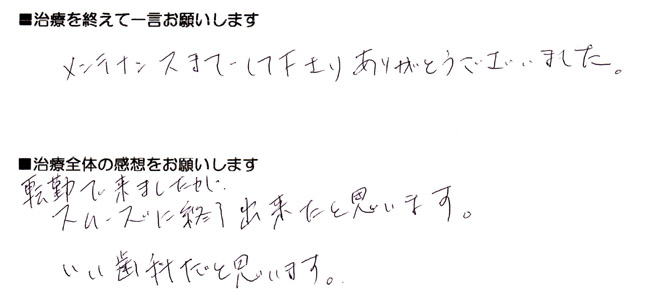 ■治療を終えて一言お願いします
メンテナンスまでして下さりありがとうございました。
■治療全体の感想をお願いします
転勤で来ましたが、
スムーズに終了出来たと思います。
いい歯科だと思います。